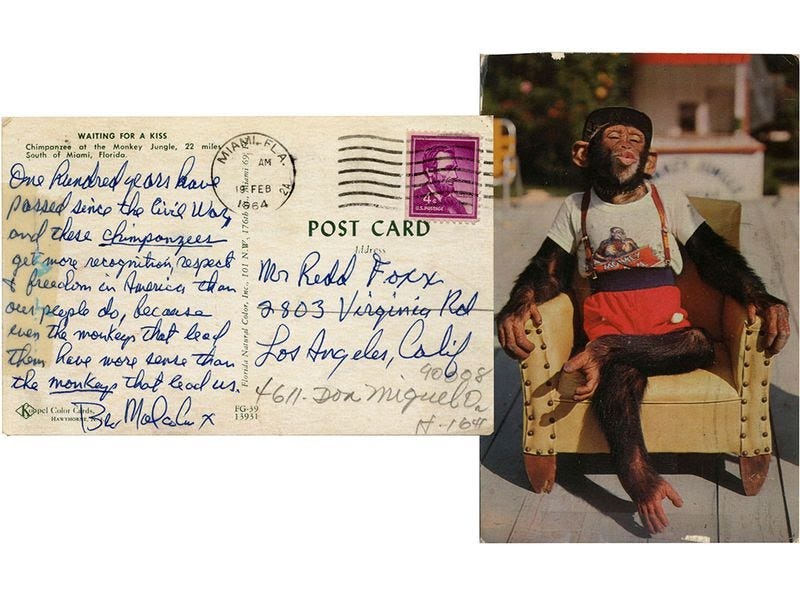 WAITING FOR A KISS
Chimpanzee at the Monkey Jungle, 22 miles
South of Miami, Florida.
One hundred years have
passed since the Civil War,
and these chimponzees
get more recognition, respect
& freedom in America than
our people do, because
even the monkeys that lead
them have more sense than
the monkeys that lead us.
Bro Malcolm X
Koppel Color Cards,
HAWTHORNE, N.
FG-39
13931
Florida Natural Color, Inc., 101 N.W. 176th
Miami 69,
MIAMI, FLA.
AM
19 FEB
1964
4¢
U.S. POSTAGE
POST CARD
Address
Mr Redd Foxx
2803 Virginia Rd
Los Angeles, Calif
90008
4611-Don Miguel Dr
H-164
MONKEY